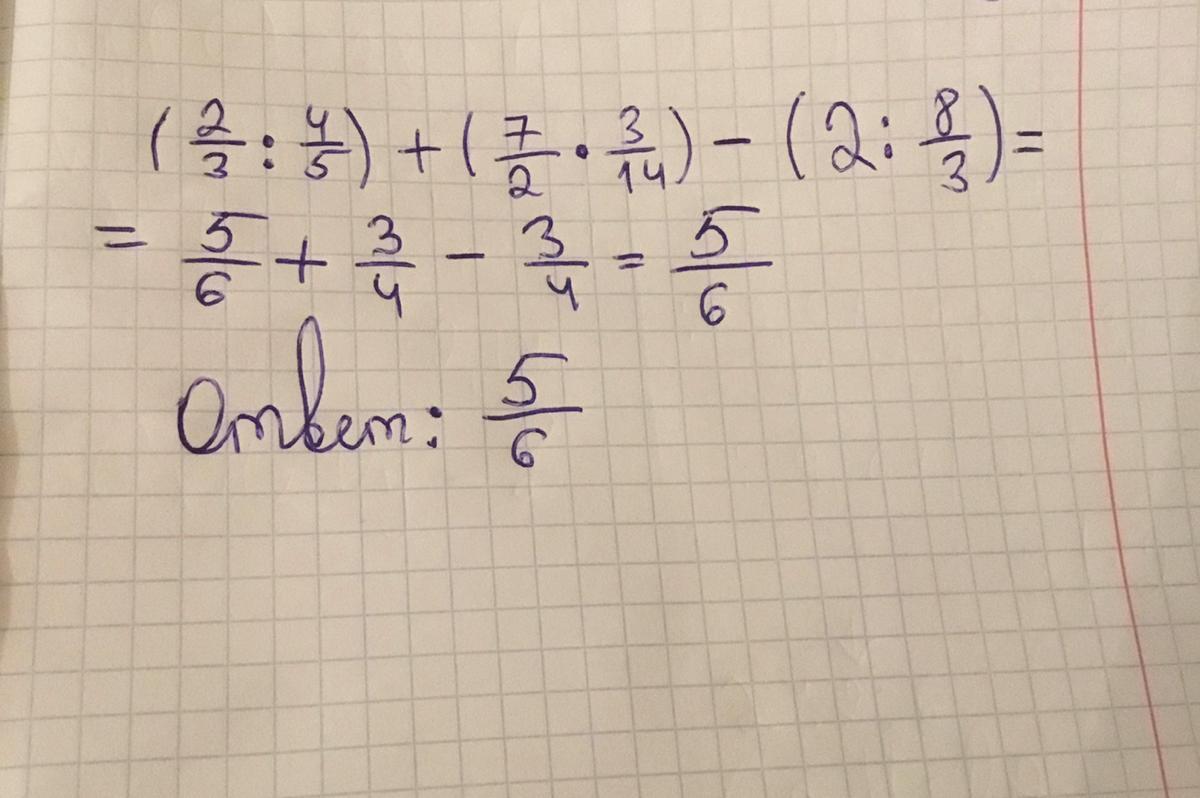 (2/3 : 4/5) + (7/2 · 3/14) - (2 : 8/3) =
= 5/6 + 3/4 - 3/4 = 5/6
Ответ: 5/6